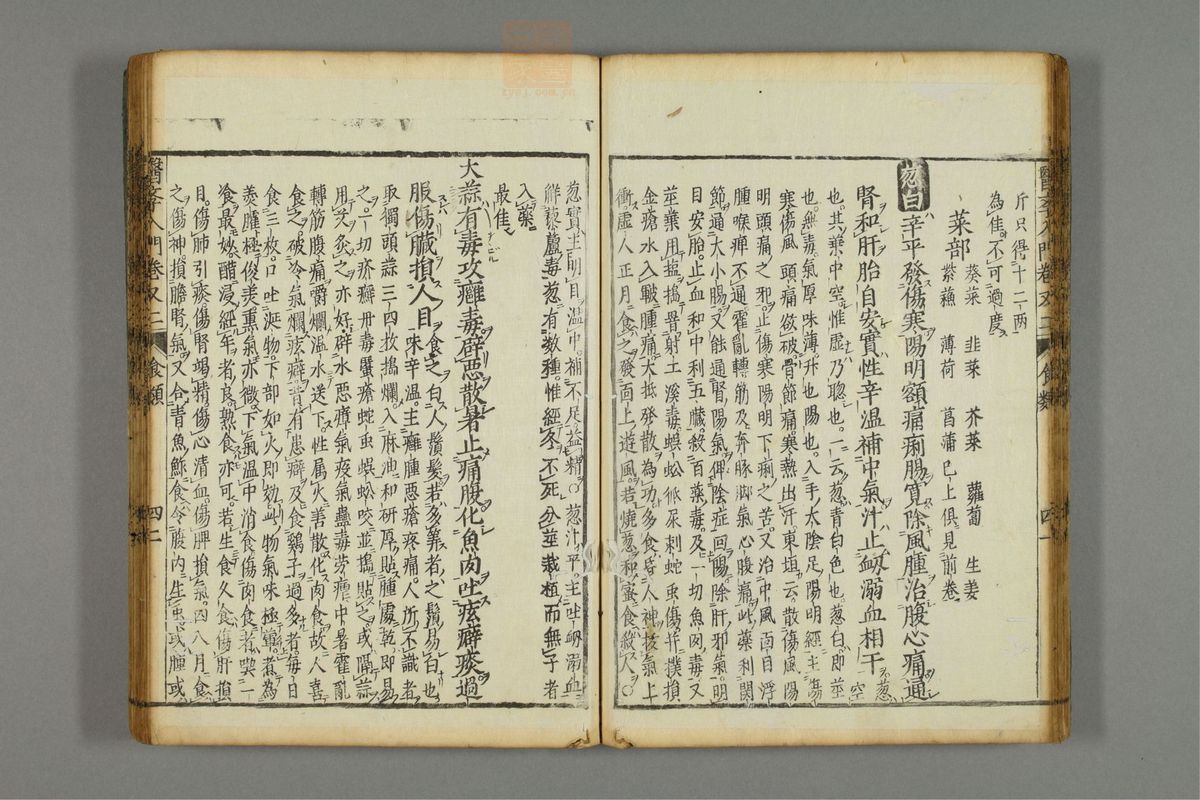 斤只得十二两
為佳不可過度
菜部 葵菜 韭菜 芥菜 蘿蔔 生姜
紫蘇 薄荷 菖蒲已上俱見前卷
葱白辛平發傷寒陽明頭痛痢腸寬除風腫治腹心痛通
腎和肝胎自安實性辛溫補中氣汁止衂溺血相干 葱空
也其葉中空惟虛乃聰也一云葱青白色也葱白即莖
也無毒氣厚味薄升也陽也入手太陰足陽明經主傷
寒傷風頭痛欲破骨節痛寒熱出汗東垣云散傷風陽
明頭痛之邪止傷寒陽明下痢之苦又治中風面目浮
腫喉痺不通霍亂轉筋及奔豚脚氣心腹痛此藥利關
節通大小腸又能通腎陽氣俾陰症回陽除肝邪氣明
目安胎止血和中利五臟殺百藥毒及一切魚肉毒又
莖葉用塩搗罯射土溪毒蜈蚣低尿刺蛇虫傷并撲損
金瘡水入皸腫痛大抵發散為功多食昏人神拔氣上
衝虛人正月食之發面上遊風若燒葱和蜜食殺人○
葱實主明目溫中補不足益精○葱汁平主吐衂溺血
解藜蘆毒葱有數種惟經冬不死分莖栽植而無子者
入藥
最佳
大蒜有毒攻癰毒辟惡散暑止痛腹化魚肉吐痃癖痰過
服傷臟損人目 食之白人鬚髮若多蒜者之鬚易白也
味辛溫主癰腫惡瘡疼痛人所不識者
取獨頭蒜三四枚搗爛入麻油和研厚貼腫處乾即易
之一切疥癬丹毒蠶瘡蛇虫蜈蚣咬並搗貼之或隔蒜
用艾灸之亦好辟水惡瘴氣疫氣蠱毒勞瘧中暑霍亂
轉筋腹痛嚼爛溫水送下性属火善散化肉食故人喜
食之破冷氣爛痃癖昔有患癖及食鷄子過多者每日
食三枚口吐涎物下部如火即効此物氣味極葷煮為
羮臛極俊美熏氣亦微下氣溫中消食傷肉食者喫一
飡最妙醋浸經年者良熟食亦可若生食久食傷肝損
目傷肺引痰傷腎竭精傷心清血傷脾損氣四八月食
之傷神損膽腎氣又合青魚鮓食令腹內生虫或腫或